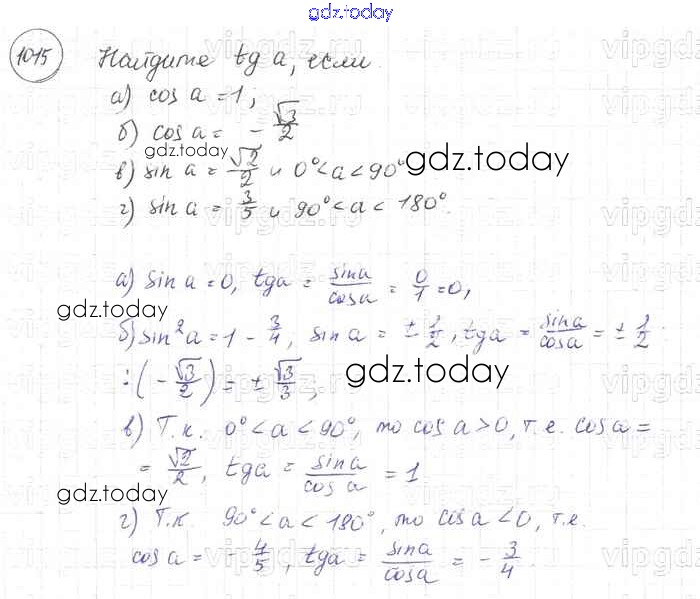 gdz.today
1015 Найдите tg a, если
а) cos a = 1;
б) cos a = - √3/2
gdz.today
в) sin a = √2/2 и 0° < a < 90°
gdz.today
г) sin a = 3/5 и 90° < a < 180°.
а) sin a = 0, tg a = sin a/cos a = 0/1 = 0,
gdz.today
б) sin² a = 1 - 3/4, sin a = ± 1/2, tg a = sin a/cos a = ± 1/2 :
: (- √3/2) = ± √3/3,
gdz.today
в) Т.к. 0° < a < 90°, то cos a > 0, т.е. cos a =
= √2/2, tg a = sin a/cos a = 1
gdz.today
г) Т.к. 90° < a < 180°, то cos a < 0, т.е.
cos a = - 4/5, tg a = sin a/cos a = - 3/4.